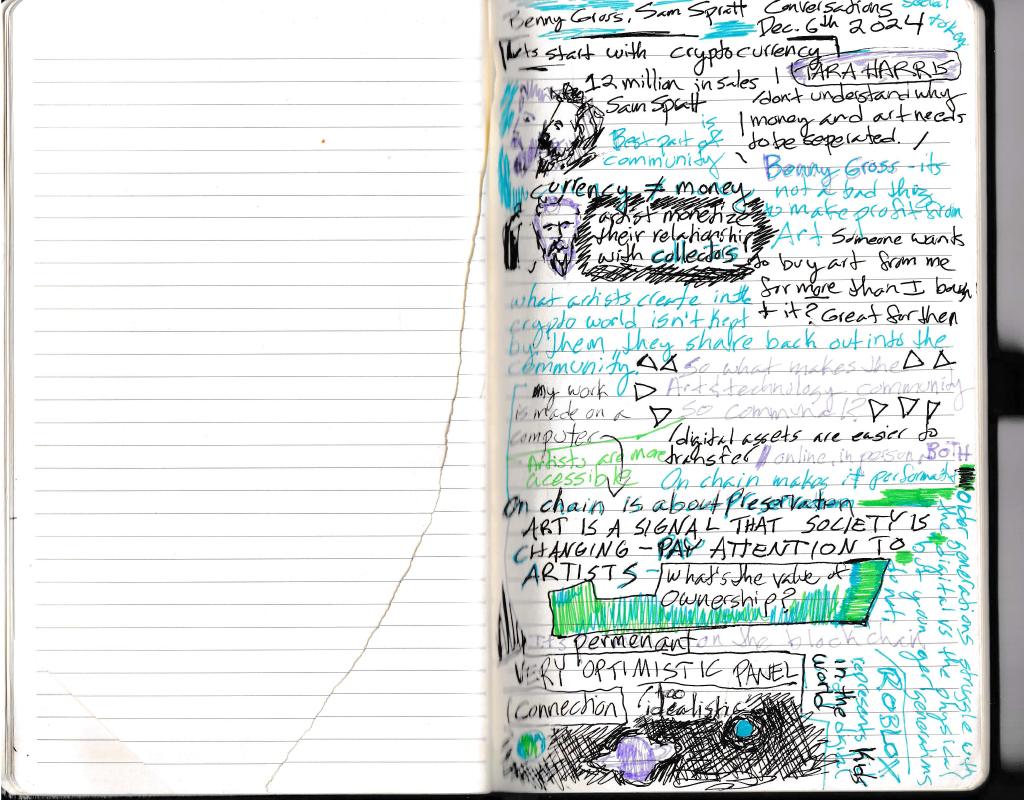 Benny Gross, Sam Spratt Conversations
Dec. 6th 2024
social
token
lets start with cryptocurrency
TARA HARRIS
12 million in sales
Sam Spratt
is
Best part of
community
I don't understand why
money and art needs
to be seperated.
Benny Gross - its
not a bad thing
to make profit from
Art
Someone wants
to buy art from me
for more than I bough
t it? Great for then
currency ≠ money
artist monetize
their relationship
with collectors
what artists create in the
crypto world isn't kept
by them, they share back out into the
community.
So what makes the
Arts technology community
So communal?
my work
is made on a
computer
Artists are more
acessible
digital assets are easier to
transfer
online, in person, BOTH
On chain makes it
On chain is about preservation
ART IS A SIGNAL THAT SOCIETY IS
CHANGING - PAY ATTENTION TO
ARTISTS -
What's the value of
Ownership?
It's permenant on the blockchain
VERY OPTIMISTIC PANEL
Connection
too
idealistic
older generations struggle with
the digital vs the physical
but younger generations
do not,
ROBLOX
represents kids
in the digital
world